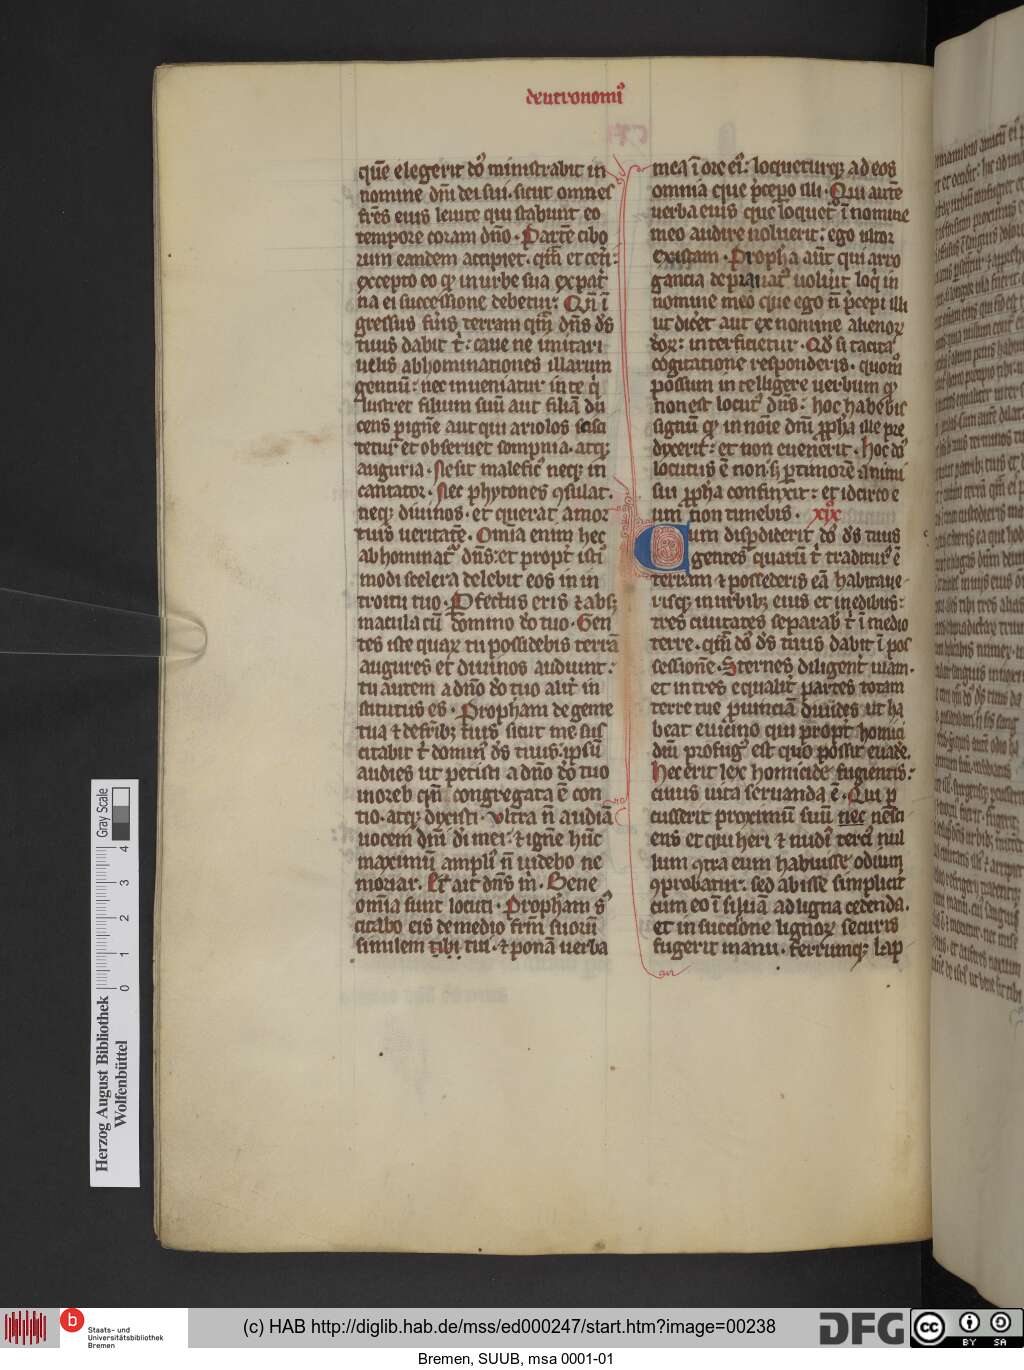 deutronomi⁹
que̅ elegerit do̅s ministrabit in
nomine dn̅i dei sui. sicut omnes
fr̅es eius leuite qui stabunt eo
tempore coram dn̅o. Parte̅ cibo
rum eandem accipiet. qua̅ et cet̅i:
excepto eo qꝫ in urbe sua ex pat̅
na ei successione debetur. Qn̅ i̅
gressus fu̅is terram qua̅ dn̅s d̅s
tuus dabit t̅: caue ne imitari
uelis abhominationes illarum
gentiu̅: nec inueniatur in te q̅
lustret filium suu̅ aut filia̅ du
cens p̱ igne̅ aut qui ariolos scisci
tetur et obseruet sompnia. atqꝫ
auguria. Ne sit malefic⁹ neqꝫ in
cantator. Nec phytones ꝯsulat.
neqꝫ diuinos. et querat a mor
tuis ueritate̅. Omia̅ enim hec
abhominat᷑ dn̅s: et propt̅ isti⁹
modi scelera delebit eos in in
troitu tuo. P̱fectus eris ⁊ absqꝫ
macula cu̅ domino do̅ tuo. Gen
tes iste quaꝝ tu possidebis terra̅
augures et diuinos audiunt:
tu autem a dn̅o do̅ tuo alit̅ in
stitutus es. Propham de gente
tua ⁊ de fr̅ibꝫ tuis sicut me sus
citabit t̅ domin⁹ d̅s tuus. ip̅su̅
audies ut petisti a dn̅o do̅ tuo
in oreb qn̅ congregata e̅ con
tio. atqꝫ dixisti. Vltra n̅ audia̅
uocem dn̅i di̅ mei: ⁊ igne̅ hu̅c
maximu̅ ampli⁹ n̅ uidebo ne
moriar. Et ait dn̅s m̅. Bene
om̅ia sunt locuti. Propham s⁹
citabo eis de medio fr̅m suoru̅
similem tibi tui. ⁊ pona̅ uerba
mea i̅ ore ei⁹: loqueturqꝫ ad eos
omnia que p̅cepo illi. Qui aute̅
uerba eius que loquet᷑ i̅ nomine
meo audire noluerit: ego ultor
existam. Proph̅a au̅t qui arro
gancia deprauat⁹ uolu̅it loq̅ in
nomine meo que ego n̅ p̅cepi illi
ut dic̅et aut ex nomine alienoꝝ
deoꝝ: interficietur. Qd̅ si tacita
cogitatione responderis. quom̅
possum intelligere uerbum qꝫ
non est locut⁹ dn̅s: hoc habebis
signu̅ qꝫ in no̅ie dn̅i pp̅ha ille pre
dixerit: et non euenerit. Hoc do̅s
locutus e̅ non. sꝫ p̱ timore̅ animi
sui pp̅ha confinxit: et idcirco e
um non timebis. xix
Cum disp̱diderit do̅s d̅s tuus
gentes quaru̅ t̅ traditur⁹ e̅
terram ⁊ possederis ea̅ habitaue
risqꝫ in urbibꝫ eius et in edibus:
tres ciuitates separab̅ t̅ i̅ medio
terre. qua̅ do̅s d̅s tuus dabit i̅ pos
sessione̅. Sternes diligent̅ uiam.
et in tres equalit̅ partes totam
terre tue puincia̅ diuides ut ha
beat euicino qui propt̅ homici
diu̅ profug⁹ est quo possit euade.
Hec erit lex homicide fugientis:
cuius uita seruanda e̅. Qui p̱
cusserit proximu̅ suu̅ nec nesci
ens et qui heri ⁊ nudi⁹ terci⁹ nul
lum ꝯtra eum habuisse odium
ꝯprobatur. sed abisse simplicit̅
cum eo i̅ silua̅ ad ligna cedenda.
et in succione lignoꝝ securis
fugerit manu. ferrumqꝫ lap
Gray Scale
4
3
2
1
0
Herzog August Bibliothek
Wolfenbüttel
b
Staats- und
Universitätsbibliothek
Bremen
(c) HAB http://diglib.hab.de/mss/ed000247/start.htm?image=00238
DFG
cc
BY SA
Bremen, SUUB, msa 0001-01